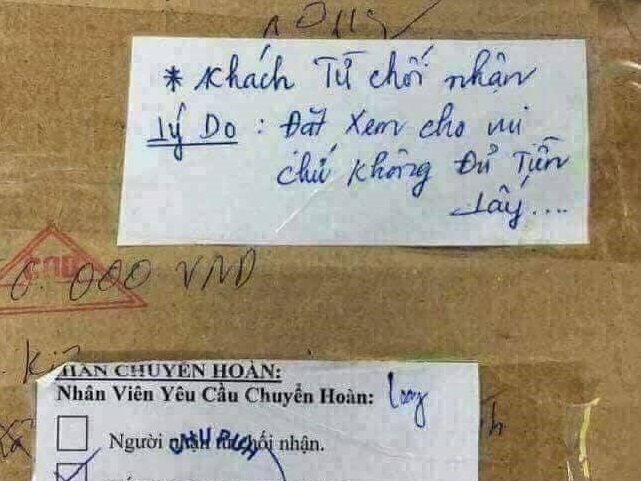 * Khách Từ chối nhận
Lý Do : Đặt xem cho vui
chứ không Đủ Tiền
Lấy....
0.000 VND
CHUYỂN HOÀN:
Nhân Viên Yêu Cầu Chuyển Hoàn:
Người nhận từ chối nhận.